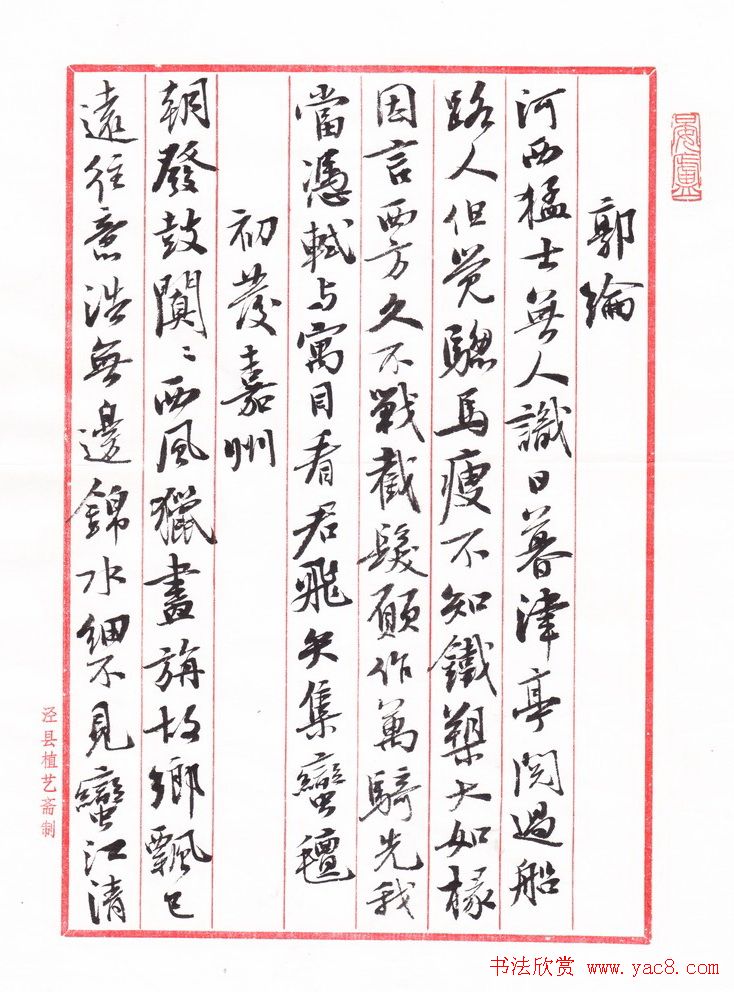 郭綸
河西猛士無人識日暮津亭閱過船
路人但觉驄馬瘦不知鐵槊大如椽
因言西方久不戰截髮願作萬騎先我
當憑軾与寓目看君飛矢集蠻氈
初發嘉州
朝發鼓闐〻西風獵畫旃故鄉飄已
遠往意浩無邊錦水細不見蠻江清
泾县植艺斋制
书法欣赏 www.yac8.com